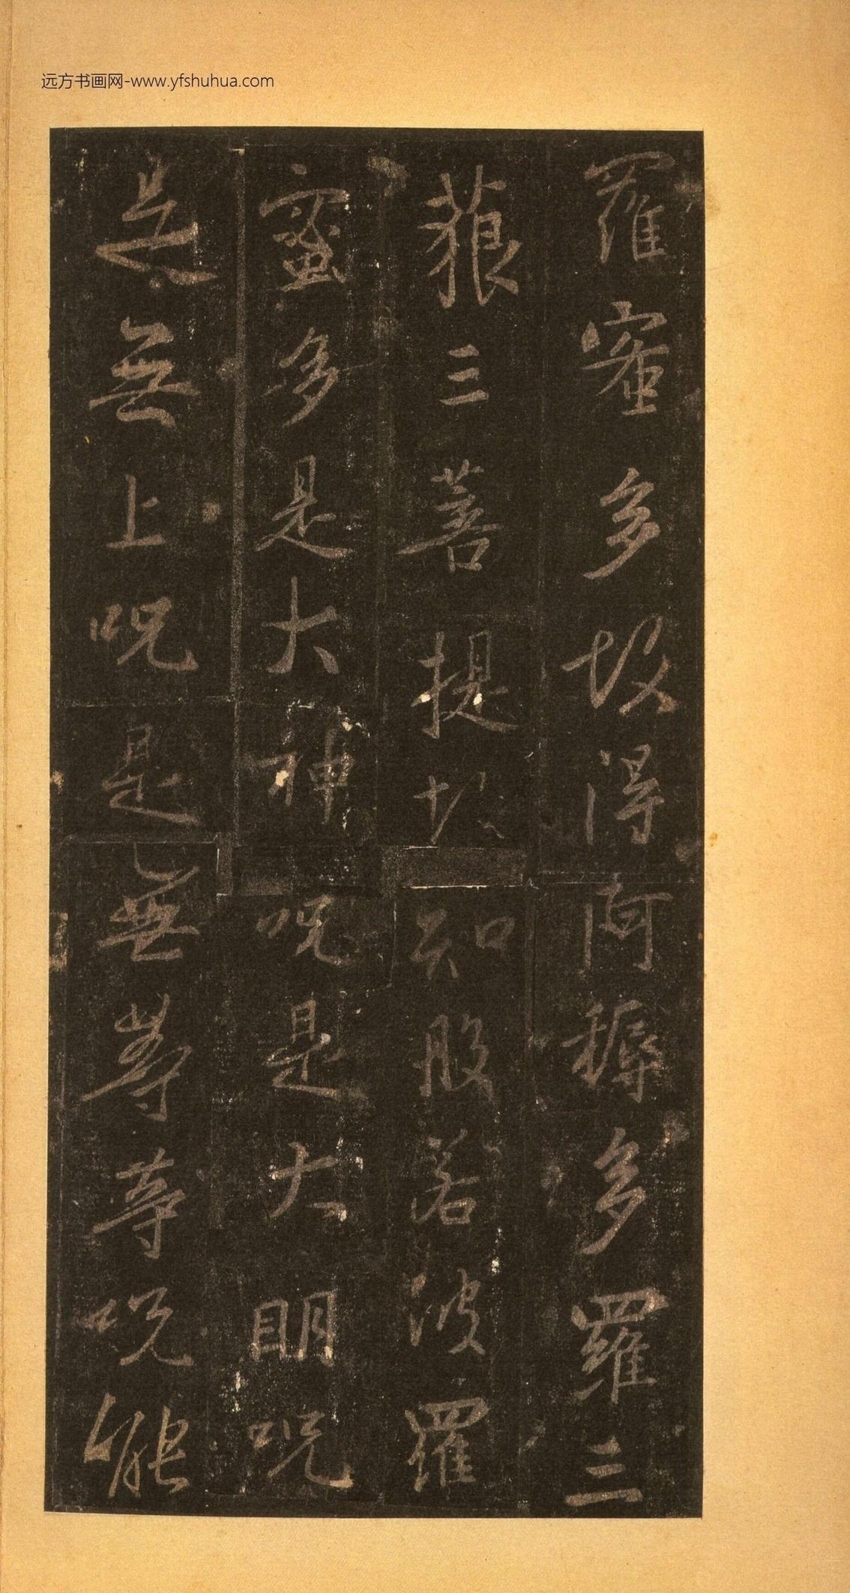 远方书画网-www.yfshuhua.com
羅蜜多故得阿耨多羅三
藐三菩提故知般若波羅
蜜多是大神呪是大明呪
是無上呪是無等等呪能